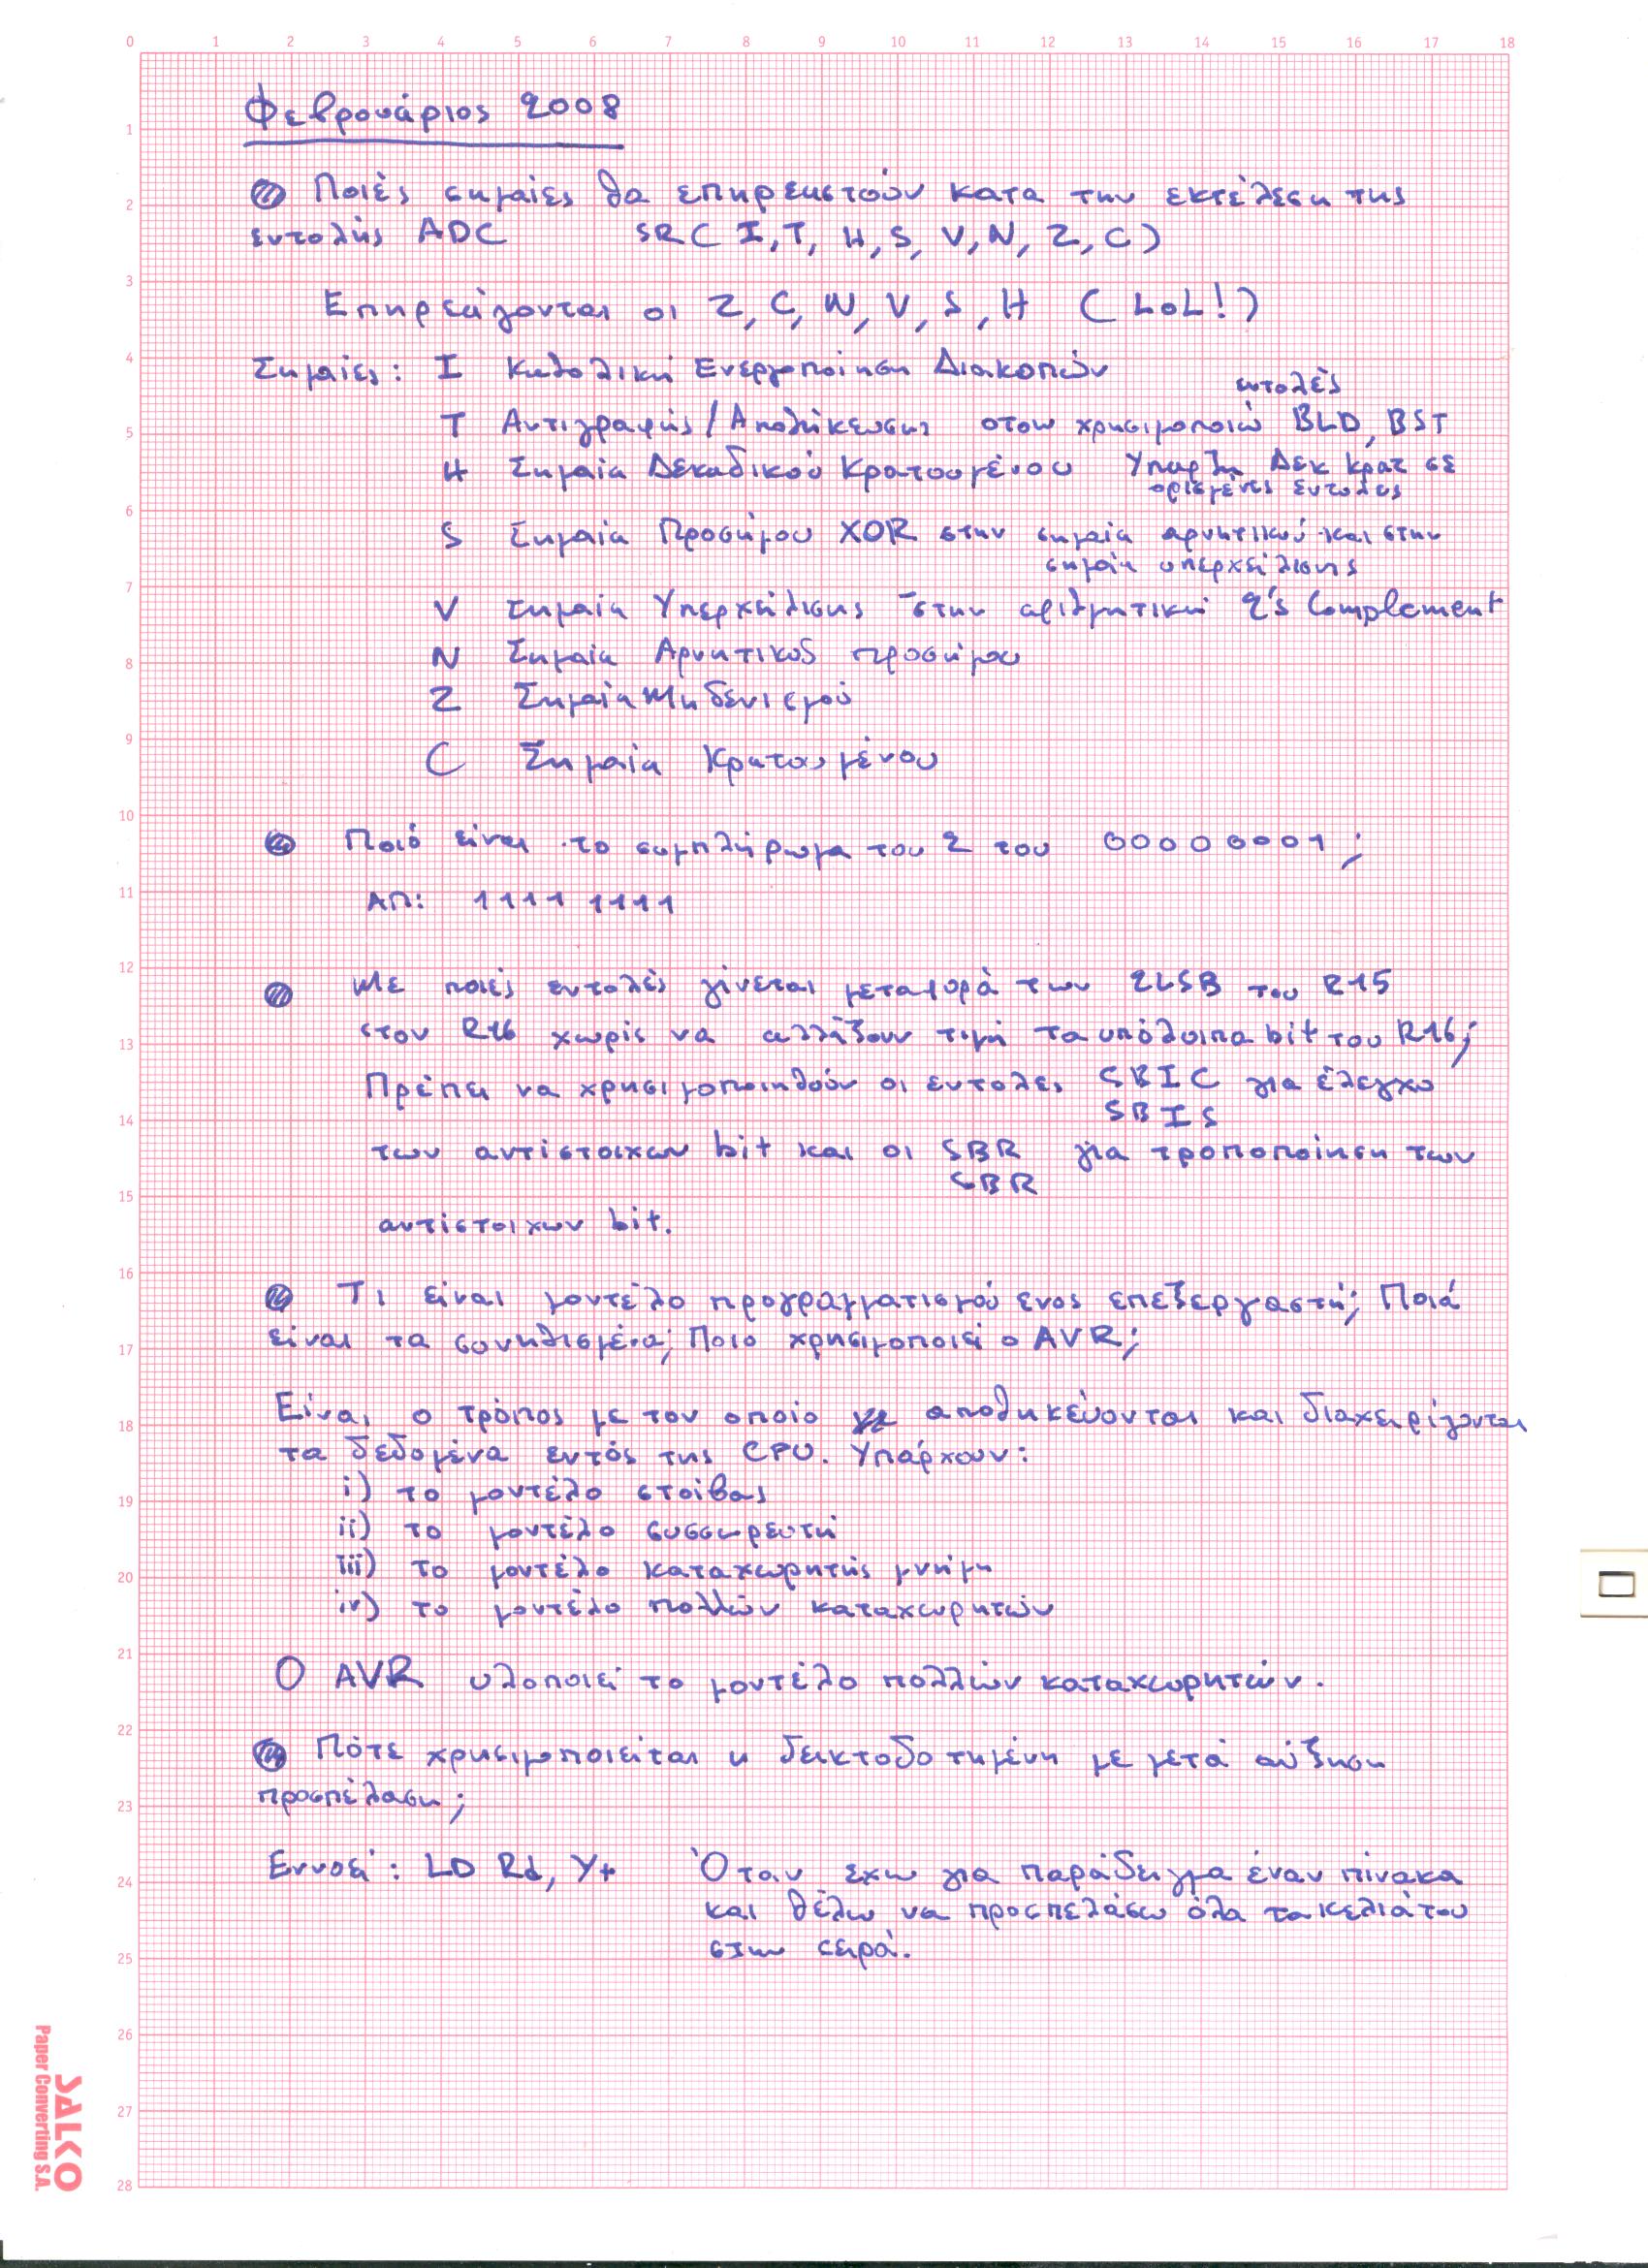 Φεβρουάριος 2008
Ποιές σημαίες θα επηρεαστούν κατα την εκτέλεση της
εντολής ADC SR( I, T, H, S, V, N, Z, C )
Επηρεάζονται οι Z, C, N, V, S, H ( LoL! )
Σημαίες: I Καθολική Ενεργοποίηση Διακοπών
εντολές
T Αντιγραφής/Αποθήκευσης όταν χρησιμοποιώ BLD, BST
H Σημαία Δεκαδικού Κρατουμένου Υπαρξη Δεκ κρατ σε
ορισμένες εντολες
S Σημαία Προσήμου XOR στην σημαία αρνητικού και στην
σημαία υπερχείλισης
V Σημαία Υπερχείλισης στην αριθμητική 2's Complement
N Σημαία Αρνητικός προσήμου
Z Σημαία Μηδενισμού
C Σημαία Κρατουμένου
Ποιό είναι το συμπλήρωμα του 2 του 00000001;
ΑΠ: 1111 1111
Με ποιές εντολές γίνεται μεταφορά των 2LSB του R15
στον R16 χωρίς να αλλάξουν τιμή τα υπόλοιπα bit του R16;
Πρέπει να χρησιμοποιηθούν οι εντολες SBIC για έλεγχο
SBIS
των αντίστοιχων bit και οι SBR για τροποποίηση των
CBR
αντίστοιχων bit.
Τι είναι μοντέλο προγραμματισμού ενος επεξεργαστή; Ποιά
είναι τα συνηθισμένα; Ποιο χρησιμοποιεί ο AVR;
Είναι ο τρόπος με τον οποίο αποθηκεύονται και διαχειρίζονται
τα δεδομένα εντός της CPU. Υπάρχουν:
i) το μοντέλο στοίβας
ii) το μοντέλο συσσωρευτή
iii) το μοντέλο καταχωρητής μνήμη
iv) το μοντέλο πολλών καταχωρητών
Ο AVR υλοποιεί το μοντέλο πολλών καταχωρητών.
Πότε χρησιμοποιείται η δεικτοδοτημένη με μετά αύξηση
προσπέλαση;
Εννοεί: LD Rd, Y+ Όταν εχω για παράδειγμα έναν πίνακα
και θέλω να προσπελάσω όλα τα κελιά του
στην σειρά.
SALKO
Paper Converting S.A.
0 1 2 3 4 5 6 7 8 9 10 11 12 13 14 15 16 17 18
1
2
3
4
5
6
7
8
9
10
11
12
13
14
15
16
17
18
19
20
21
22
23
24
25
26
27
28